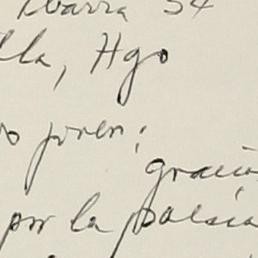 Ibarra 34
lla, Hgo
joven:
gracia
por la poesia